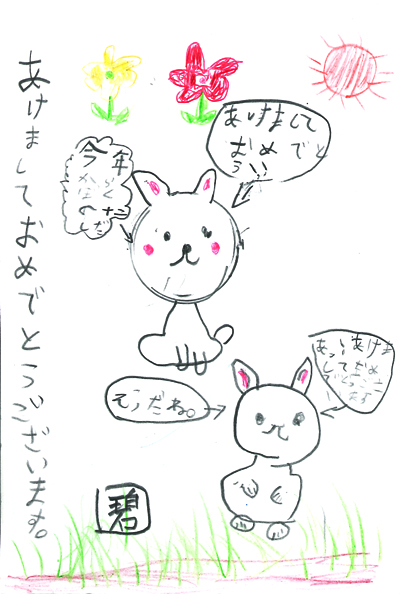 あけましておめでとうございます。
あけまして
おめでと
う!!
今年
そうだね。
あっ!!あけま
しておめ
でとうござ
います
碧